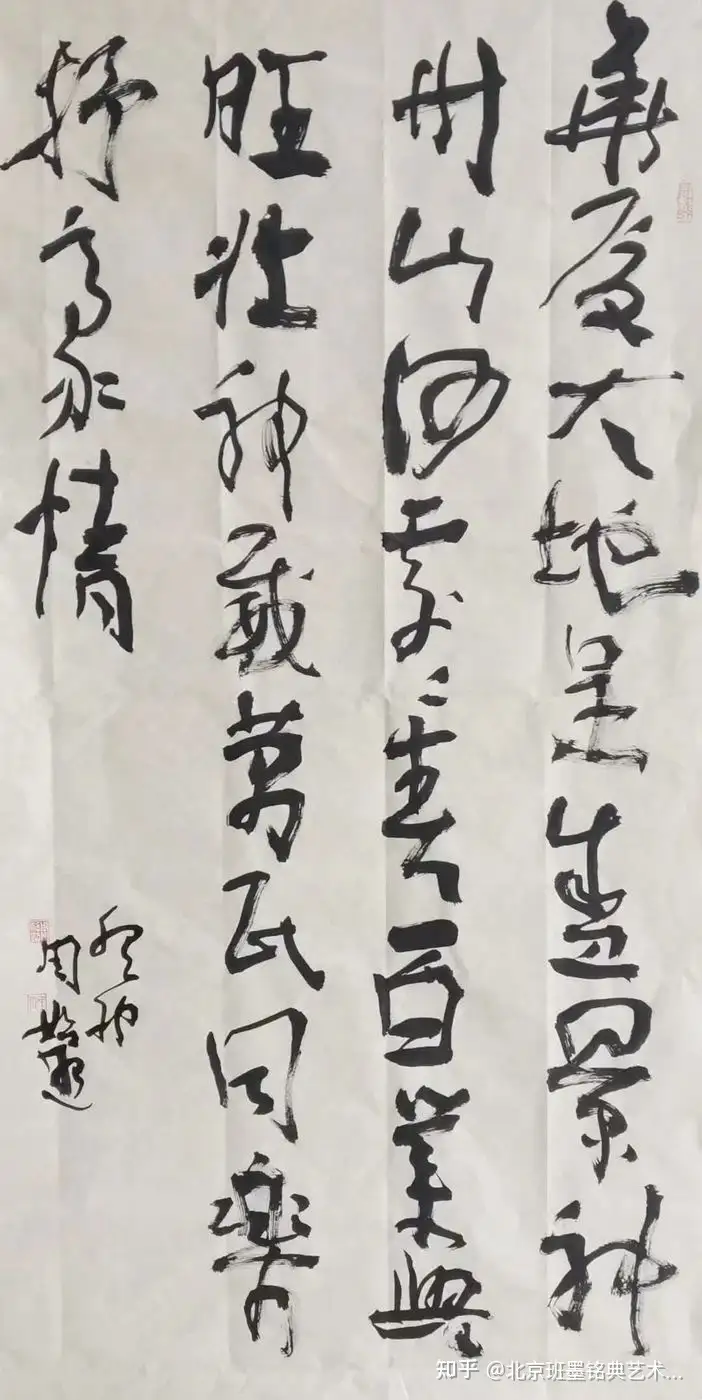 華夏大地呈盛景神
州山河處〻春百業興
旺壯神威萬民同樂
抒豪情
周
知乎 @北京班墨铭典艺术...